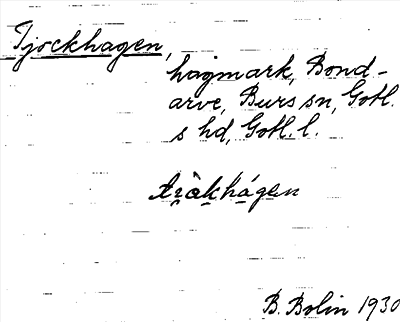 Tjockhagen,
hagmark, Bond-
arve, Burs sn, Gotl.
s hd, Gotl. l.
B. Bolin 1930